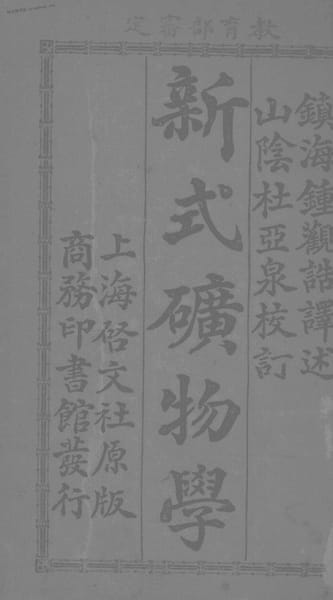 教育部審定
鎮海鍾觀誥譯述
山陰杜亞泉校訂
新式礦物學
上海啓文社原版
商務印書館發行